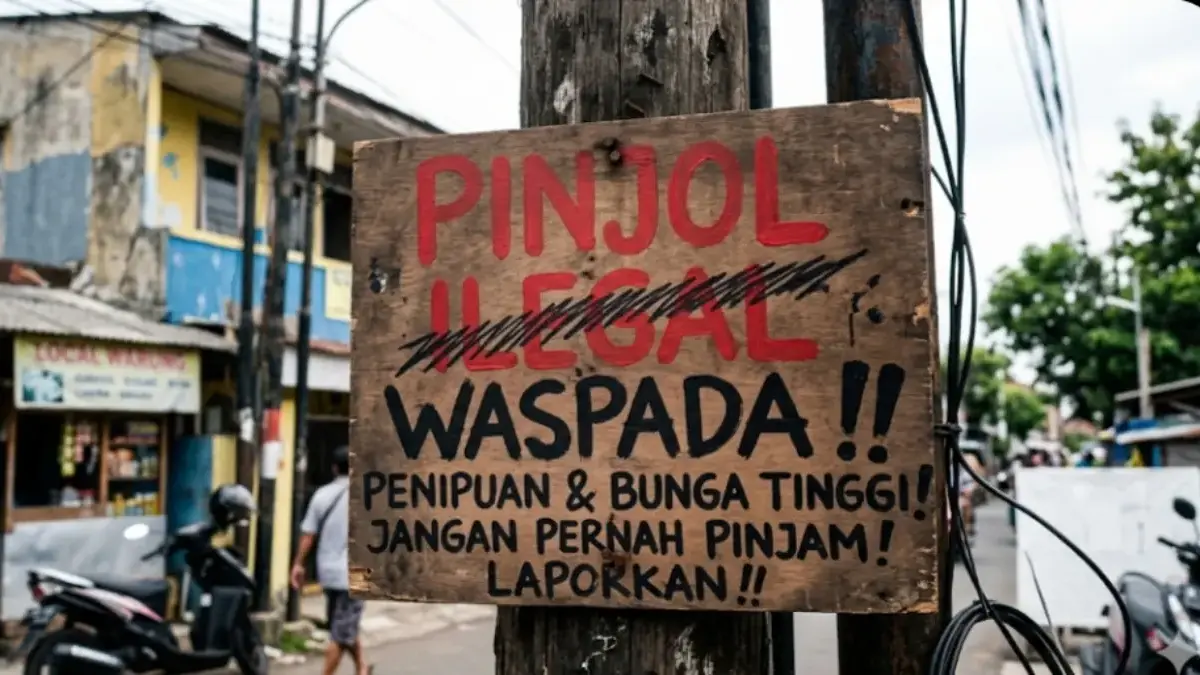 LOCAL WARUNG
PINJOL
ILEGAL
WASPADA!!
PENIPUAN & BUNGA TINGGI!
JANGAN PERNAH PINJAM!
LAPORKAN!!